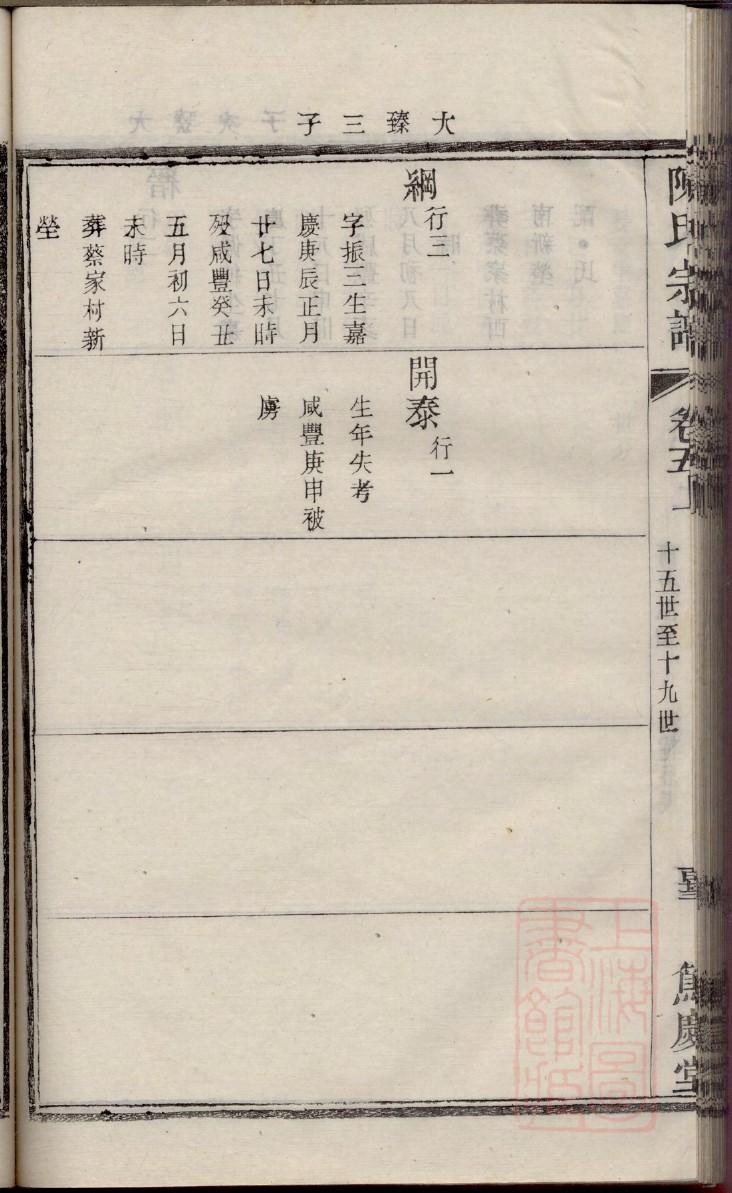 大臻三子
綱行三
字振三生嘉
慶庚辰正月
廿七日未時
歿咸豐癸丑
五月初六日
未時
葬蔡家村新
塋
開泰行一
生年失考
咸豐庚申被
虜
陳氏宗譜
卷五上
十五世至十九世
慶堂
上海圖
書館藏